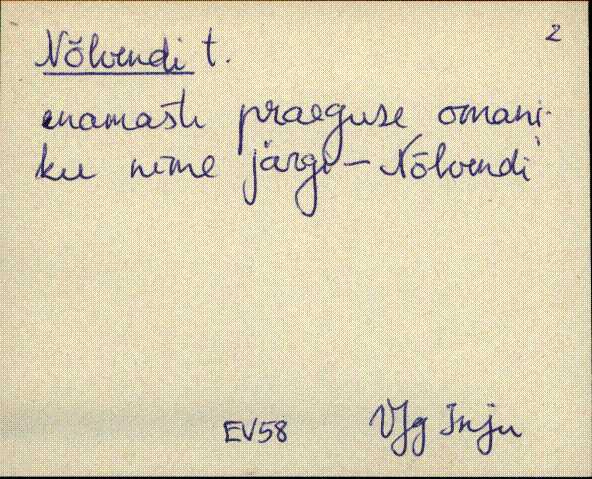 2
Nõlvendi t.
enamasti praeguse omani-
ku nime järgi – Nõlvendi
EV58 VJg Inju